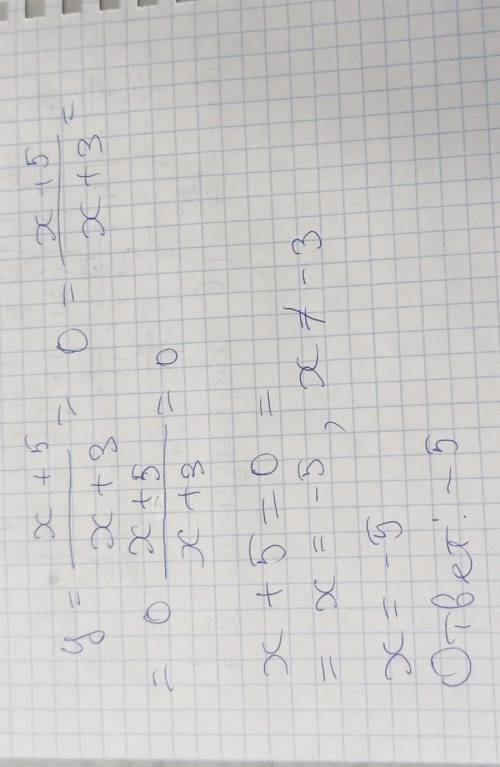 y = x+5/x+3 = 0 = x+5/x+3 =
= 0 x+5/x+3 = 0
x + 5 = 0 =
= x = -5, x ≠ -3
x = -5
Ответ: -5